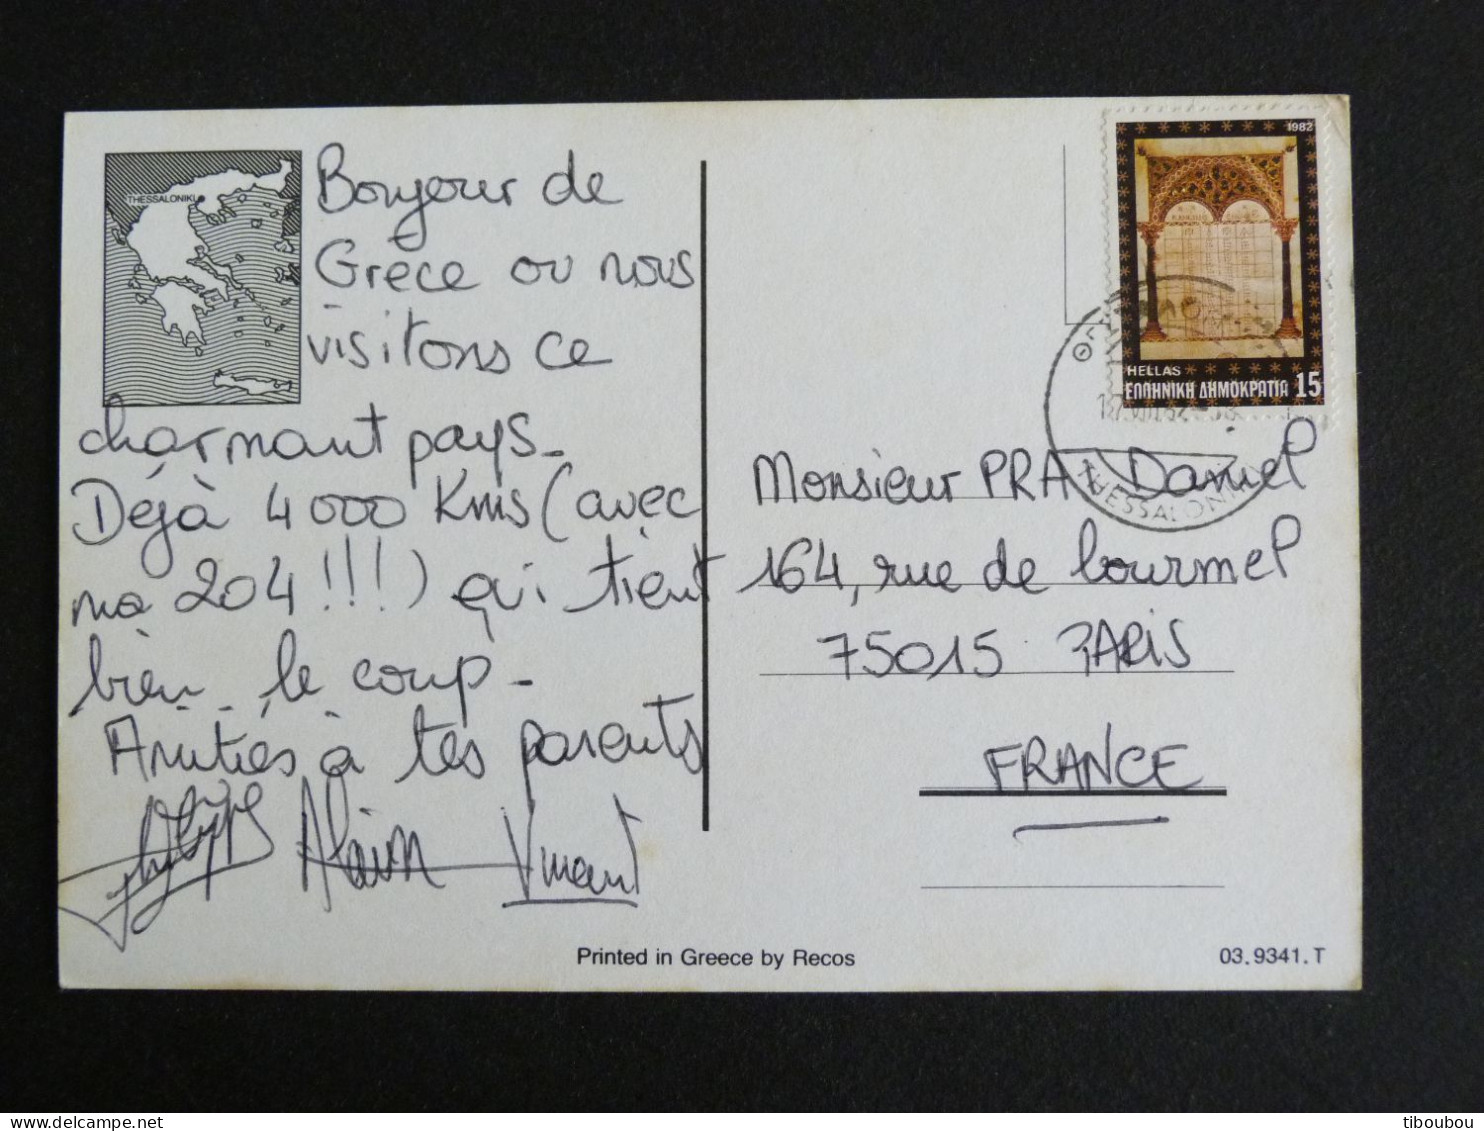 THESSALONIKI
Bonjour de
Grèce ou nous
visitons ce
charmant pays_
Déjà 4000 Kms (avec
ma 204!!!) qui tient
bien le coup_
Amitiés à tes parents
Alain Vincent
1982
HELLAS
ΕΛΛΗΝΙΚΗ ΔΗΜΟΚΡΑΤΙΑ 15
THESSALONIKI
Monsieur PRAT Daniel
164, rue de Lourmel
75015 PARIS
FRANCE
Printed in Greece by Recos
03.9341.T
tiboubou